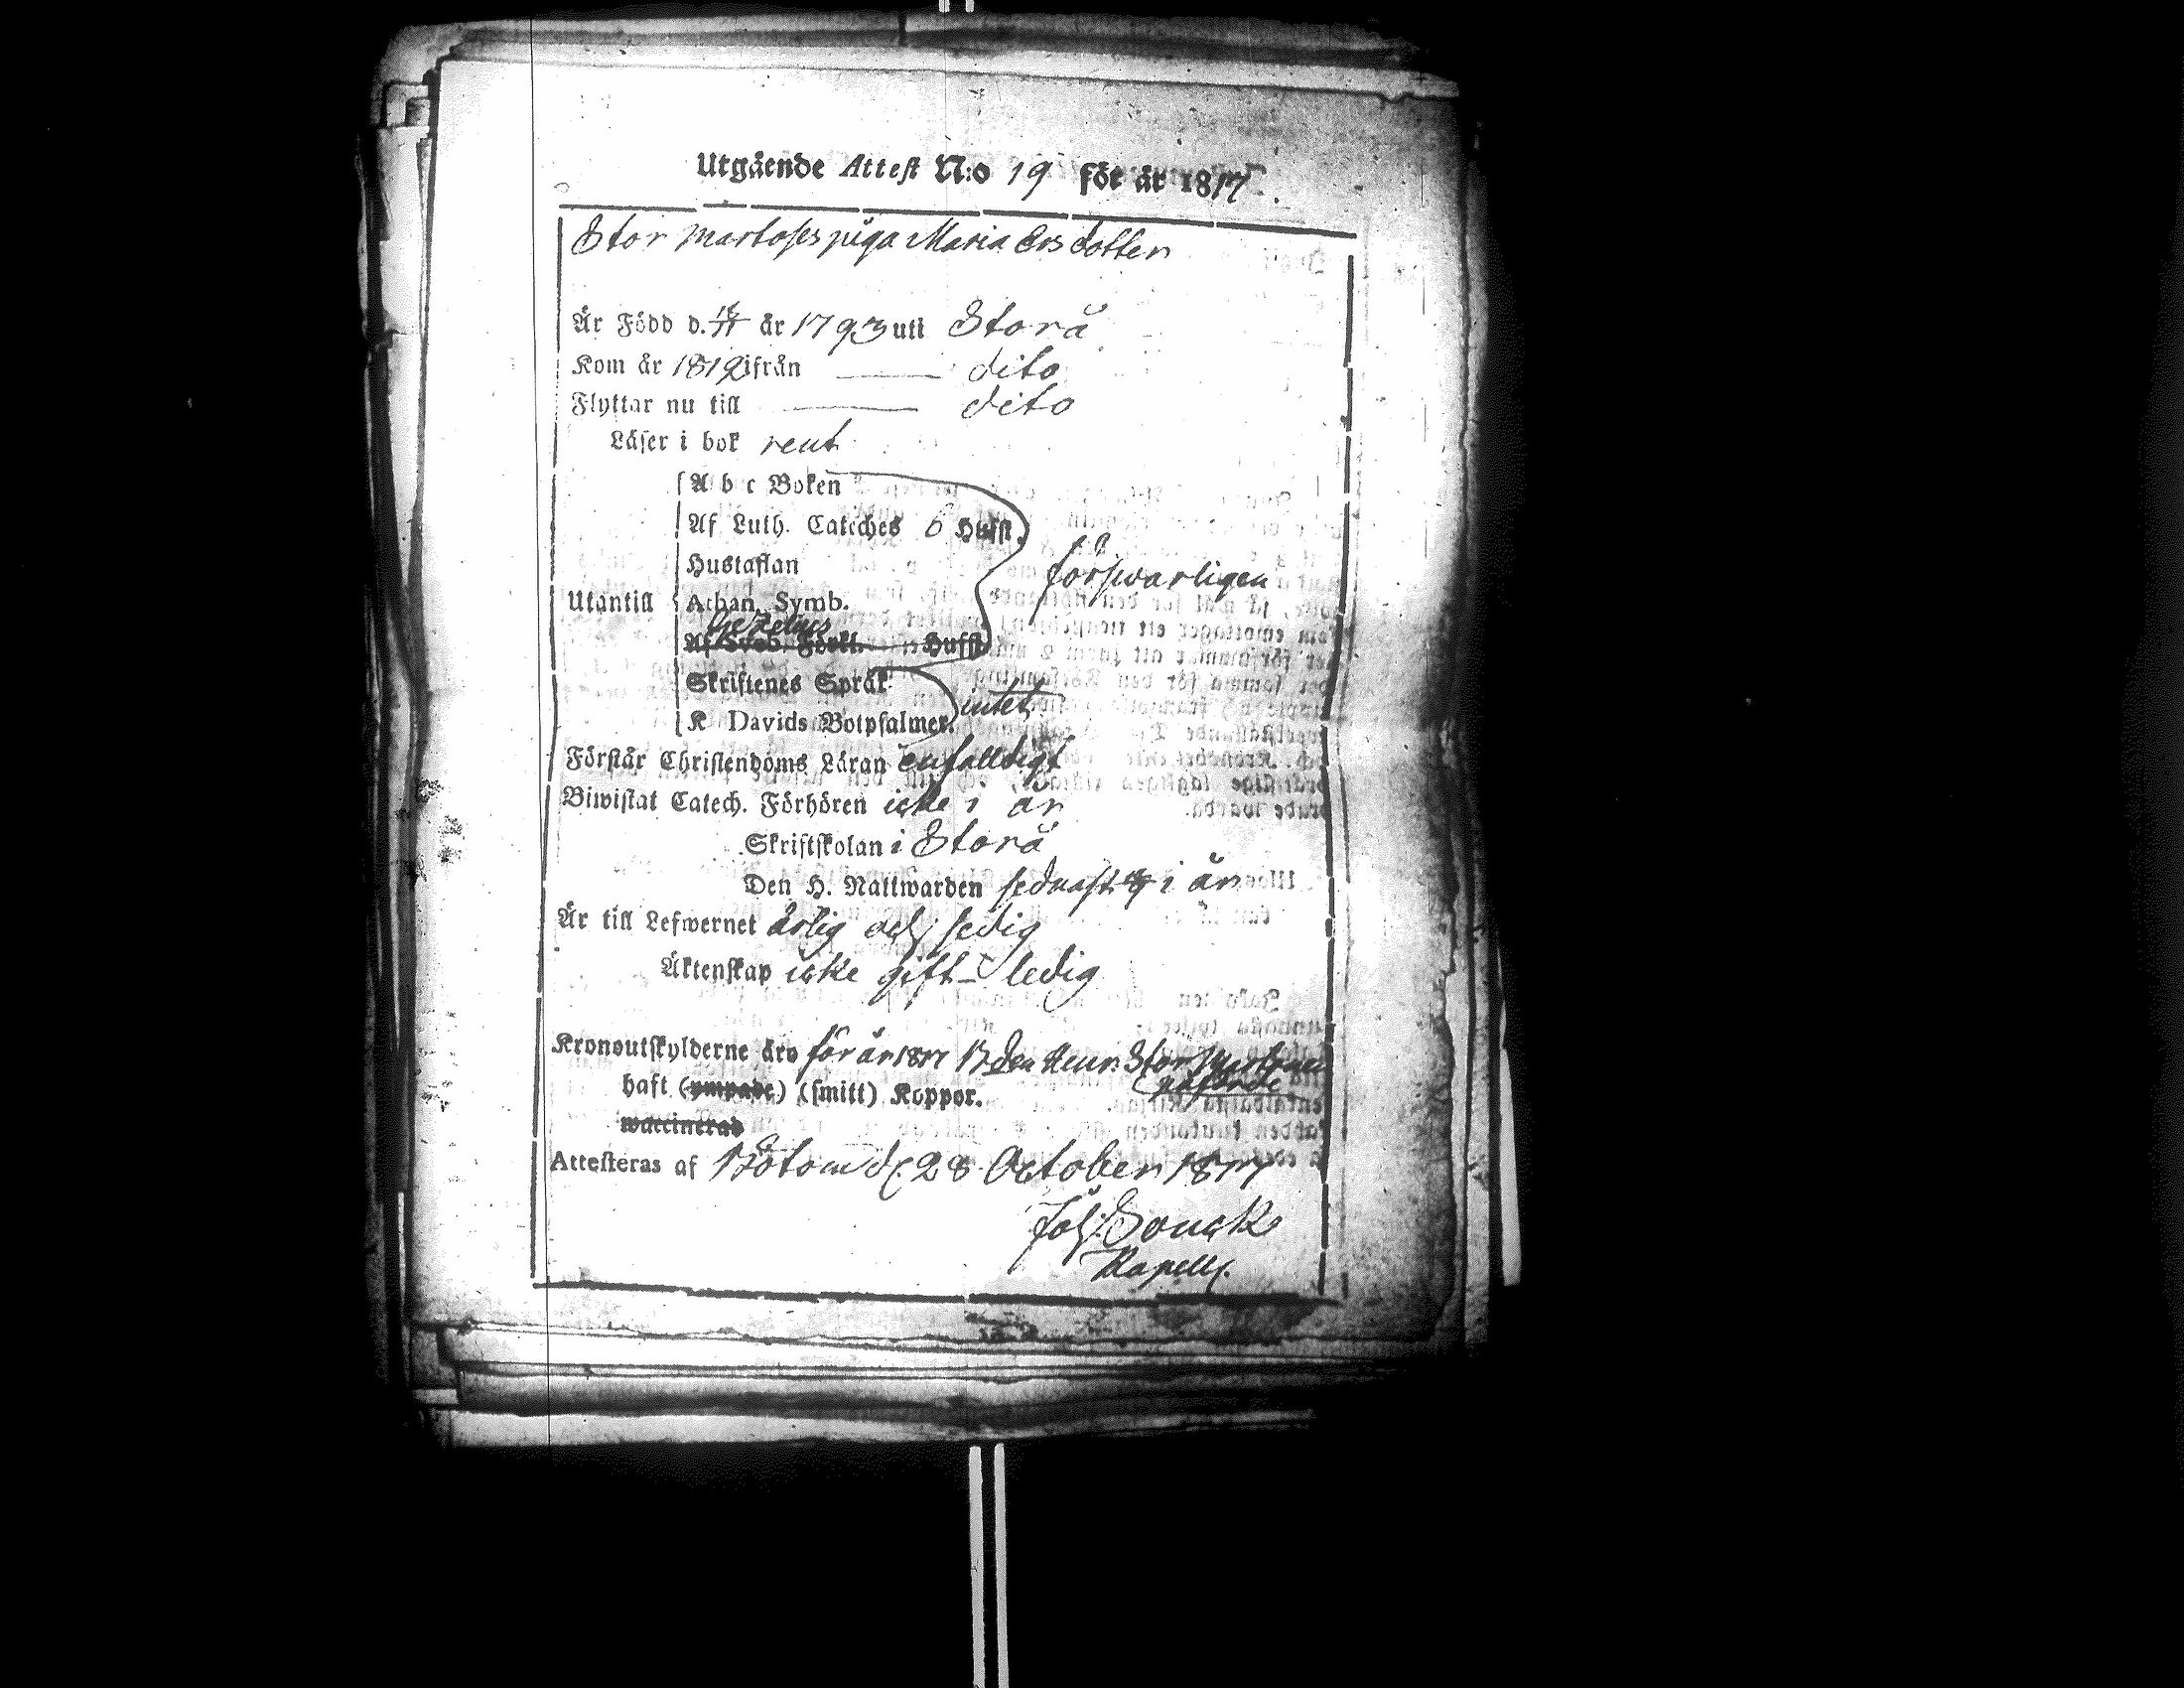 Utgående Attest N:o 19 för år 1817.
Stor Martoses piga Maria Ersdotter
Är Född d. 18/11 år 1793 uti Storå
Kom år 1812 ifrån — dito
Flyttar nu till — dito
Läser i bok rent
A b c Boken
Af Luth. Cateches 6 Hufst.
Hustaflan
försvarligen
Utantill Athan. Symb.
Gezelius
Af Sveb. Förkl. Hufst.
Skriftenes Språk
intet
K Davids Botpsalmer.
Förstår Christendoms Läran enfalldigt
Biwistat Catech. Förhören icke i år
Skriftskolan i Storå
Den H. Nattwarden sednast i år
Är till Lefwernet ärlig och sedig
Äktenskap icke gift – ledig
Kronoutskylderne äro för år 1817
påförde
haft (ympade) (smitt) Koppor.
waccinerad
Attesteras af Bötom d. 28 October 1817
Joh. Bonck
Kapell.